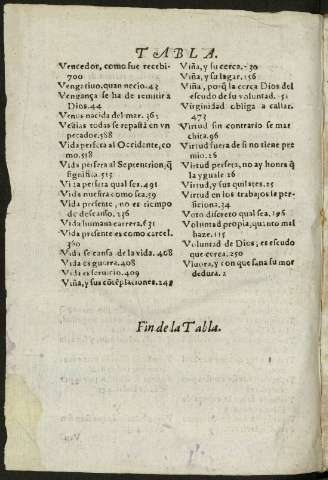 TABLA.
Vencedor, como fue recebi-
700
Vengatiuo, quan necio. 43
Vengança se ha de remitir a
Dios. 44
Venus nacida del mar. 365
todas se en vn
pecador. 588
Vida al Occidente, co
mo. 518
Vida al Septentrion, q̃
significa. 515
Vida perseta qual sea. 491
Vida nuestra como sea. 59
Vida presente, no es tiempo
de descanso. 236
Vida humana carrera. 631
Vida presente es como carcel.
360
Vida se cansa de la vida. 408
Vida es guerra. 408
Vida es seruicio. 409
Viña, y sus cõtẽplaciones. 248
Viña, y su cerca.
Viña, y su lagar. 256
Viña, porq̃ la cerca Dios del
escudo de su voluntad. 251
Virginidad obliga a callar.
473
Virtud sin contrario se mar
chita. 96
Virtud fuera de si no tiene pre
mio. 26
Virtud perseta, no ay honra q̃
la yguale 26
Virtud, y sus quilates. 25
Virtud en los trabajos se per-
ficiona. 34
Voto discreto qual sea. 196
Voluntad propia, quãto mal
haze. 115
Voluntad de Dios, es escudo
que cerca. 250
Viuora, y con que sana su mor
dedura. 2
Fin de la Tabla.